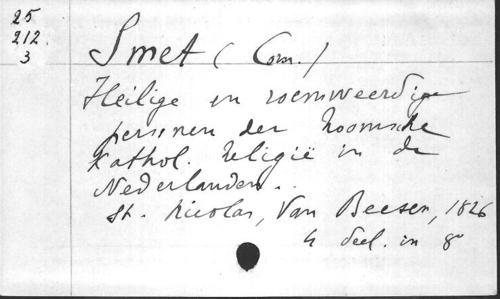 25
212.
3
Smet (Corn.)
Heilige en roemweerdige
personen der Roomsche
Kathol. Religie in de
Nederlanden..
St. Nicolas, Van Beesen, 1826
4 deel. in 8º